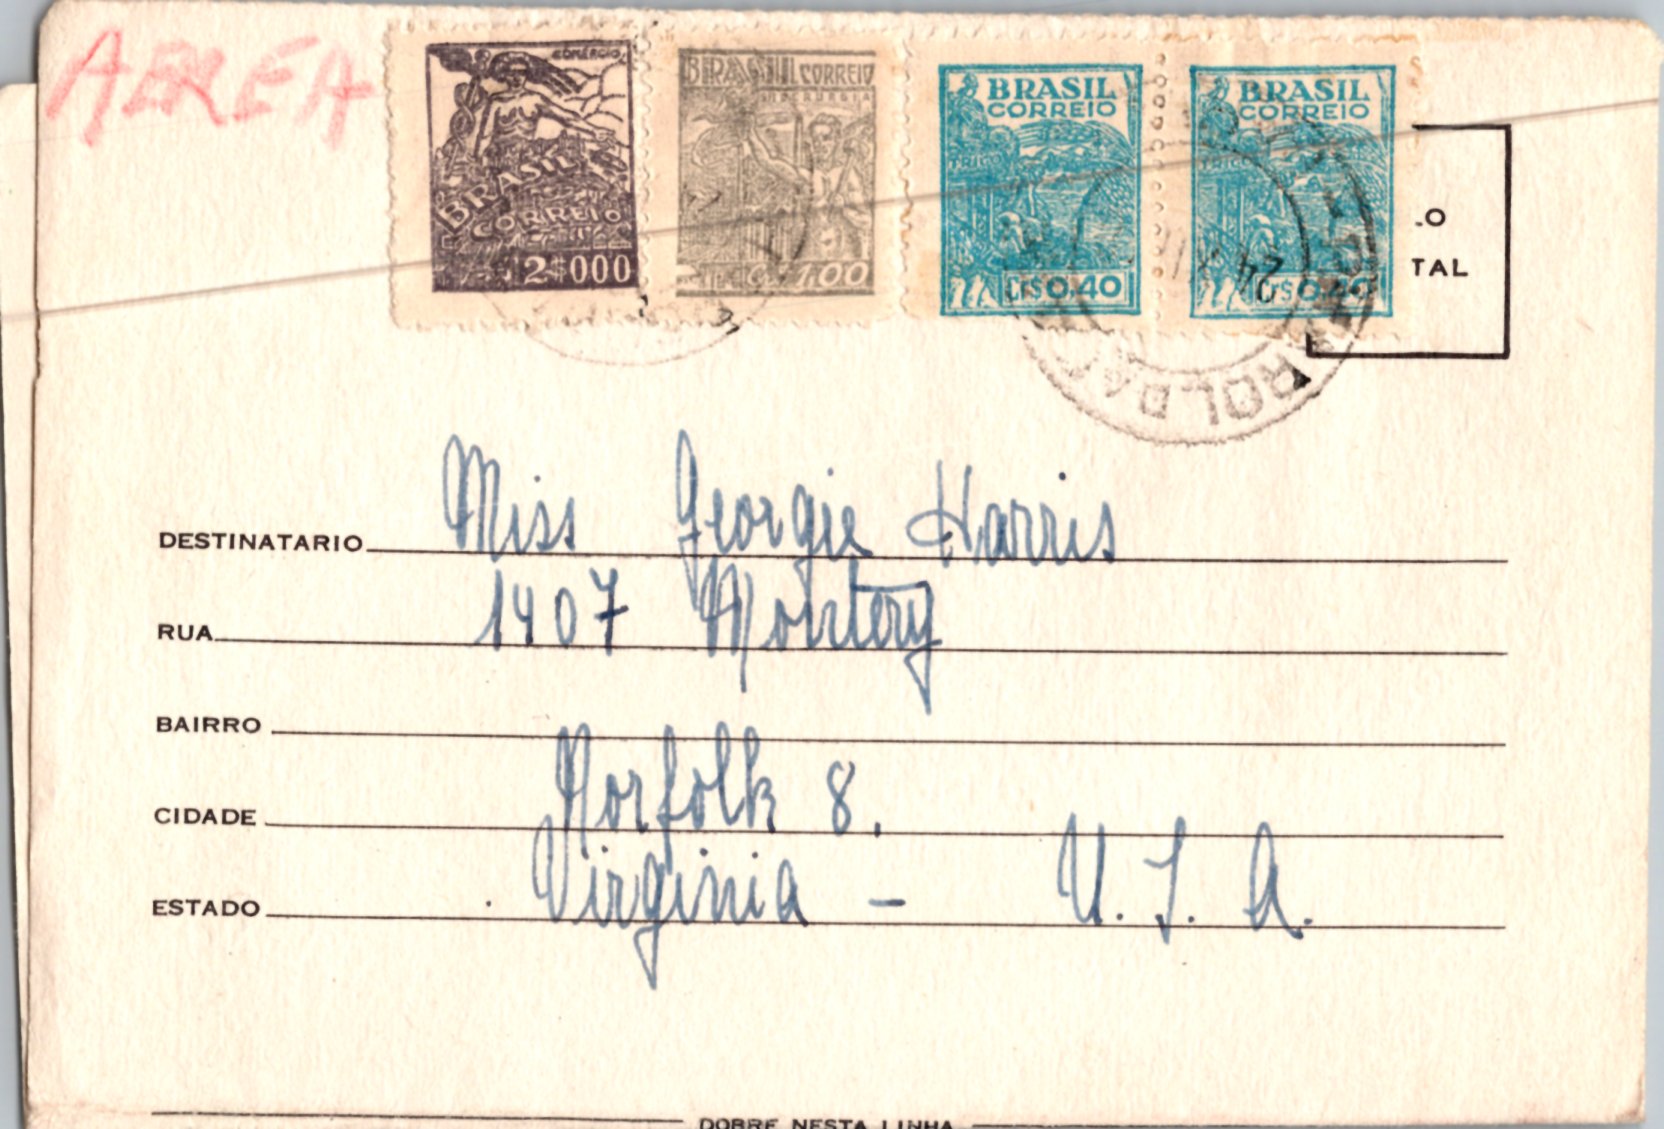 AEREA
COMÉRCIO
BRASIL
CORREIO
2$000
BRASIL CORREIO
SIDERURGIA
1,00
BRASIL
CORREIO
TRIGO
CR$ 0,40
BRASIL
CORREIO
TRIGO
CR$ 0,40
24
LO
TAL
DESTINATARIO Miss Georgie Harris
RUA 1407 Montery
BAIRRO
CIDADE Norfolk 8.
ESTADO Virginia - U.S.A.
DOBRE NESTA LINHA